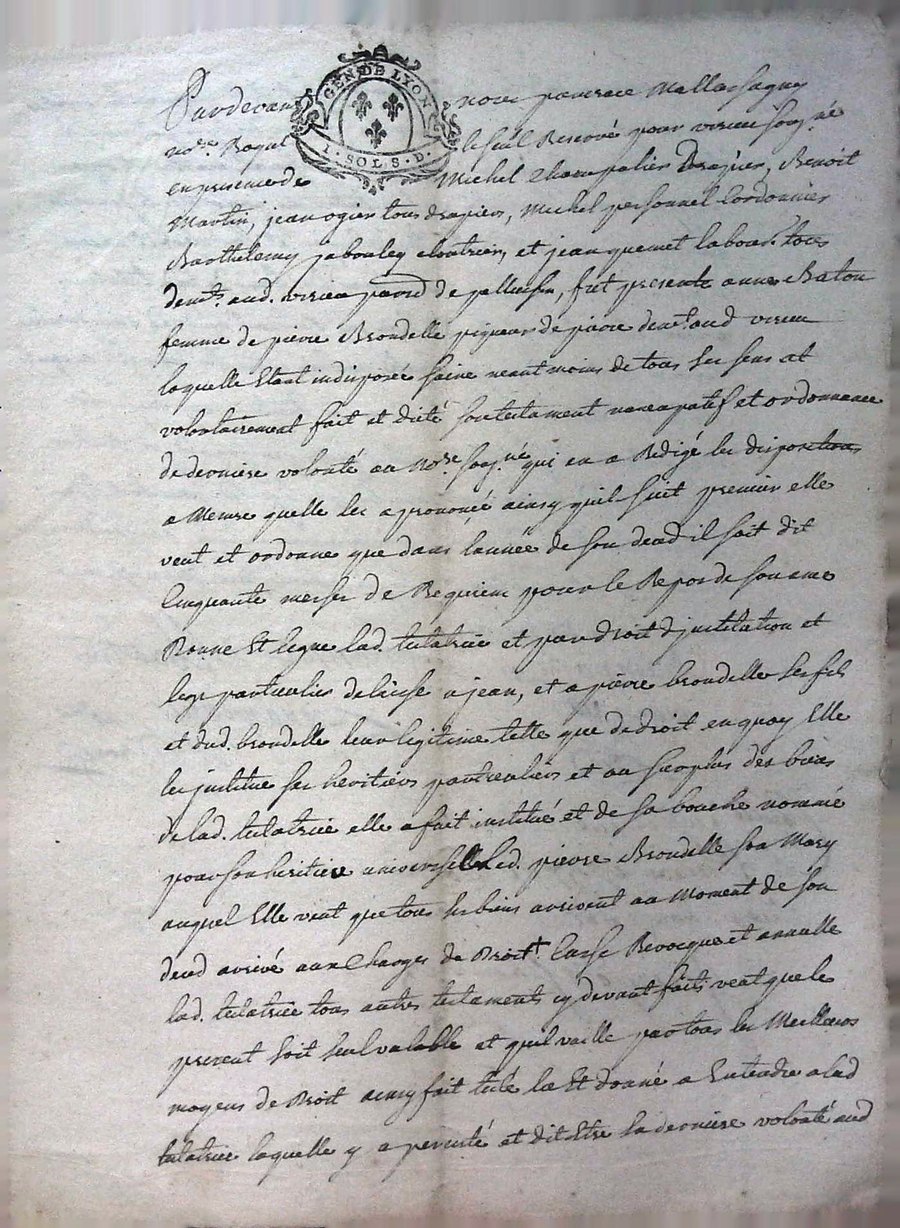 GEN. DE LYON
1. SOL S. D.
Pardevant nous pancrace Mallassagny
no.re Royal le seul Reservé pour virieu soug.né
en presence de Michel Champalier Drapier, Benoit
Martin, jean ogier tous drapiers, Michel personnel Cordonnier
Barthelemy jabouley cloutrier, et jean quemet labour. tous
deme.ts aud. virieu paroisse de pellussin, fut presente anne Baton
femme de pierre Brondelle piqueur de pierre deme.t aud virieu
laquelle Etant indisposée saine neantmoins de tous ses sens at
volontairement fait et dicté son testament noncupatif et ordonnance
de derniere volonté au No.re soug.né qui en a Redigé les dispositions
a Mesure quelle les a prononcé ainsy quil suit premier elle
veut et ordonne que dans lannée de son deced il soit dit
Cinquante messes de Requiem pour le Repos de son ame
Donne Et legue lad. testatrice et par droit djnstitution et
legs particulier delaisse a jean, et a pierre brondelle ses fils
et dud. brondelle leur legitime telle que de droit en quoy Elle
les jnstitue ses heritiers particuliers et au surplus des biens
de lad. testatrice elle a fait institué et de sa bouche nommé
pour son heritier universelle led. pierre Brondelle son Mary
auquel Elle veut que tous ses biens arrivent au Moment de son
deced arrivé aux Charges de Droit. Casse Revocque et annulle
lad. testatrice tous autres testaments cy devant faits veut que le
present soit seul valable et quil vaille par tous les Meilleurs
moyens de Droit ainsy fait leté lu Et donné a Entendre a lad
testatrice laquelle y a persisté et dit Etre sa derniere volonté aud